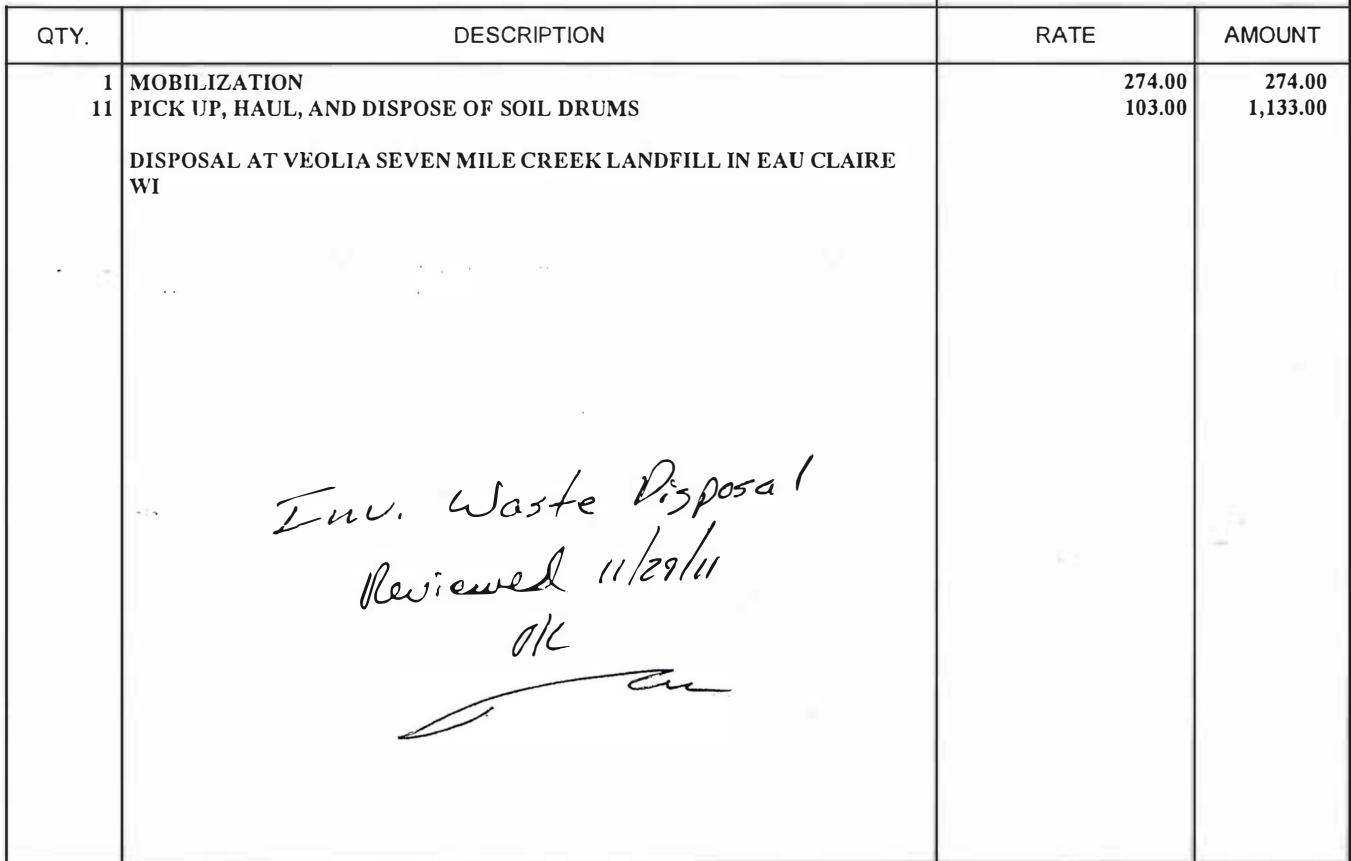 QTY. DESCRIPTION RATE AMOUNT
1 MOBILIZATION 274.00 274.00
11 PICK UP, HAUL, AND DISPOSE OF SOIL DRUMS 103.00 1,133.00
DISPOSAL AT VEOLIA SEVEN MILE CREEK LANDFILL IN EAU CLAIRE
WI
Inv. Waste Disposal
Reviewed 11/29/11
OK